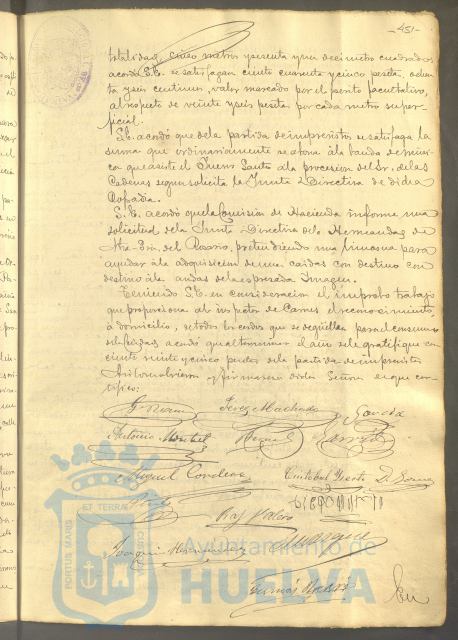 -451-
totalidad, cinco metros y sesenta y un decimetro cuadrados
acordó S.E. se satisfagan ciento cuarenta y cinco pesetas ochen
ta y seis centimos, valor marcado por el perito facultativo,
al respecto de veinte y seis pesetas por cada metro super-
ficial.
S.E. acordó que de la partida de imprevistos se satisfaga la
suma que ordinariamente se abona á la banda de músi
ca que asiste el Jueves Santo á la procesion del Sr. de las
Cadenas segun solicita la Junta Directiva de dicha
Cofradia.
S.E. acordó que la Comision de Hacienda informe una
solicitud de la Junta Directiva de la Hermandad de
Ntra. Sra. del Rosario, pretendiendo una limosna para
ayudar á la adquisicion de unas caidas con destino con
destino á las andas de la espresada Imagen.
Teniendo S.E. en consideracion el improbo trabajo
que proporciona al inspector de Carnes el reconocimiento
á domicilio, de todos los cerdos que se degüellan para el consumo
de la Ciudad, acordó que al terminar el año se le gratifique con
ciento veinte y cinco pesetas de la partida de imprevistos
Asi lo resolvieron y firmaron dichos Señores de que cer-
tifico:
Perez Machado
Garcia
Antonio
Garrido
Miguel
Cristobal
Joaquin Hernandez
Marquez
PORTUS MARIS ET TERRAE CUSTODIA
Ayuntamiento de
HUELVA
En